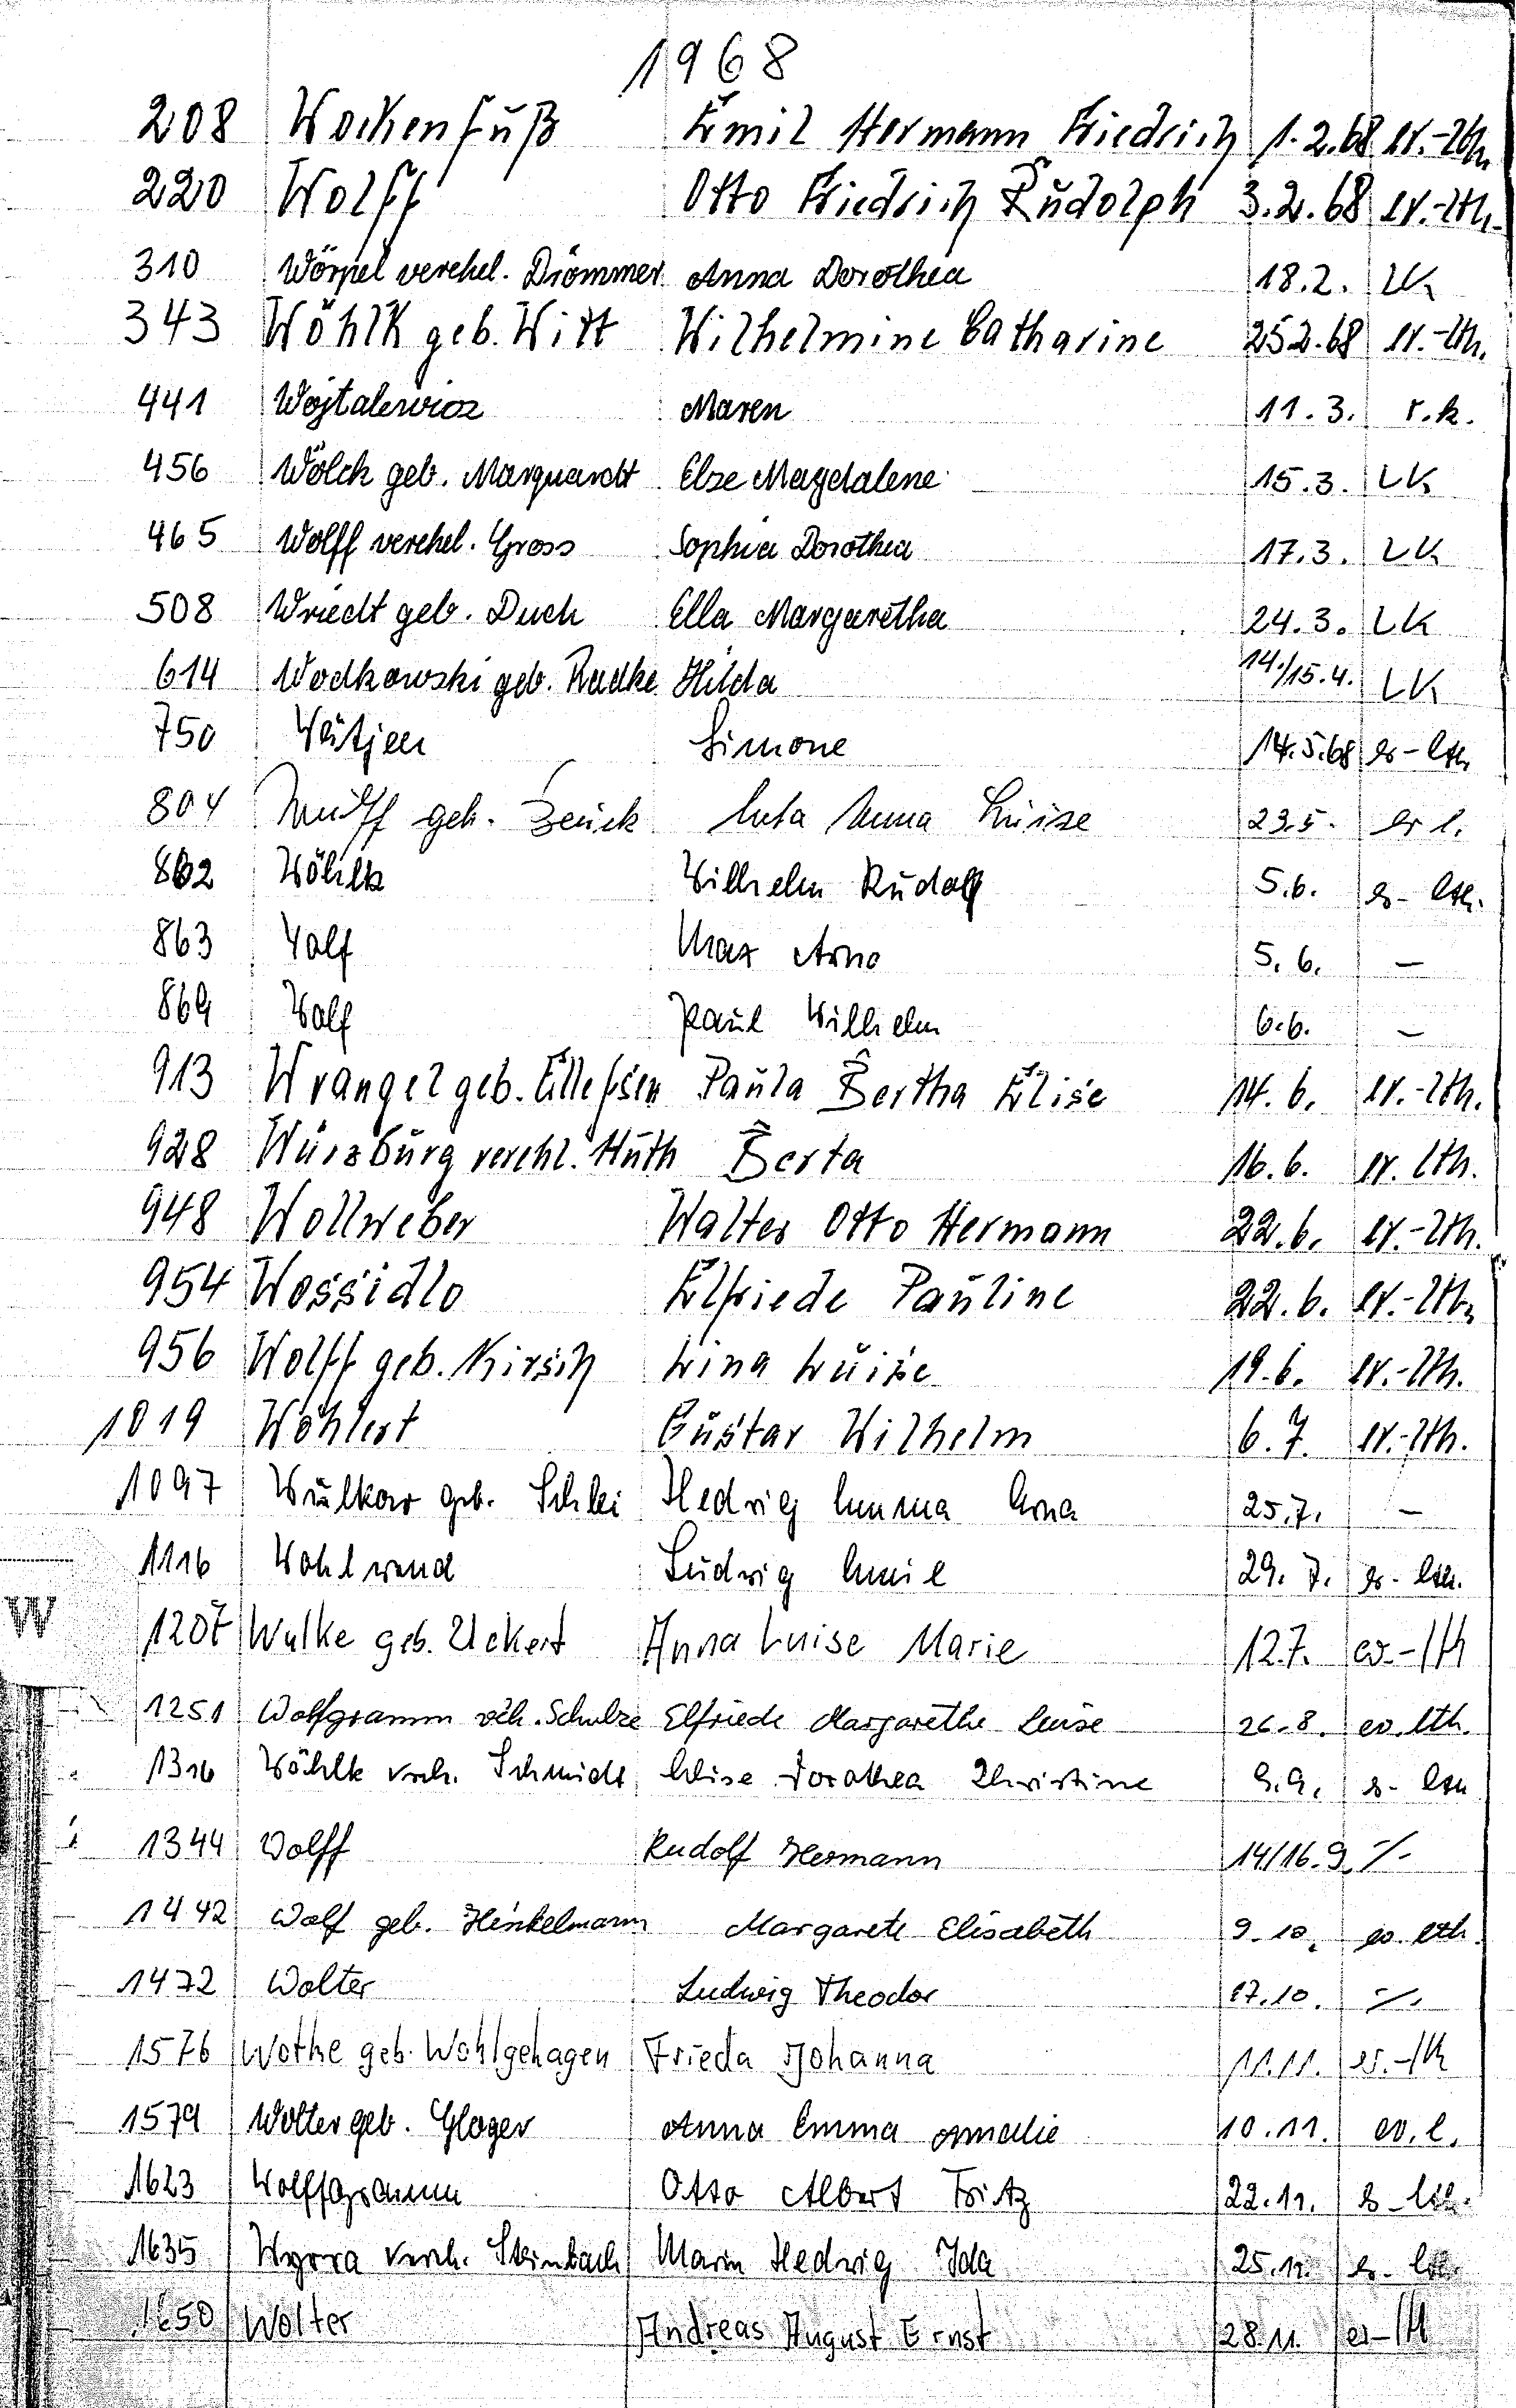 1968
208 Wockenfuß Emil Hermann Friedrich 1.2.68 ev.-lth.
220 Wolff Otto Friedrich Rudolph 3.2.68 ev.-lth.
310 Wörpel verehel. Drömmer Anna Dorothea 18.2. LK
343 Wöhlk geb. Witt Wilhelmine Catharine 25.2.68 ev.-lth.
441 Wojtalewicz Maren 11.3. r.k.
456 Wölck geb. Marquardt Else Magdalene 15.3. LK
465 Wolff verehel. Gross Sophia Dorothea 17.3. LK
508 Wriedt geb. Duch Ella Margaretha 24.3. LK
614 Wodkowski geb. Radke Hilda 14./15.4. LK
750 Wätjen Simone 14.5.68 ev-lth.
804 Wulff geb. Anna Luise 23.5. ev l.
862 Wöhlk Wilhelm Rudolf 5.6. ev-lth.
863 Wolf Max Arno 5.6. –
869 Wolf Paul Wilhelm 6.6. –
913 Wrangel geb. Ellefsen Paula Bertha Elise 14.6. ev.-lth.
928 Würzburg verehl. Huth Berta 16.6. ev. lth.
948 Wollweber Walter Otto Hermann 22.6. ev.-lth.
954 Wossidlo Elfriede Pauline 22.6. ev.-lth.
956 Wolff geb. Kirsch Lina Luise 19.6. ev.-lth.
1019 Wöhlert Gustav Wilhelm 6.7. ev.-lth.
1097 Wulkow geb. Schlei Hedwig Emma Erna 25.7. –
1116 Wohlwend Ludwig Emil 29.7. ev-lth.
W
1207 Wulke geb. Uckert Anna Luise Marie 12.7. ev.-lth
1251 Wolfgramm veh. Schulze Elfriede Margarethe Luise 26.8. ev.lth.
1316 Wöhlk verh. Schmidt Elise Dorothea Christine 9.9. ev-lth
1344 Wolff Rudolf Hermann 14/16.9. ./.
1442 Wolf geb. Hinkelmann Margarete Elisabeth 9.10. ev. lth.
1472 Wolter Ludwig Theodor 17.10. ./.
1576 Wothe geb. Wohlgehagen Frieda Johanna 11.11. ev.-lth
1579 Wolter geb. Gloger Anna Emma Amalie 10.11. ev.l.
1623 Wolffgramm Otto Albert Fritz 22.11. ev-lth.
1635 Wyrra verh. Steinbach Marie Hedwig Ida 25.11. ev-lth.
1650 Wolter Andreas August Ernst 28.11. ev-lth